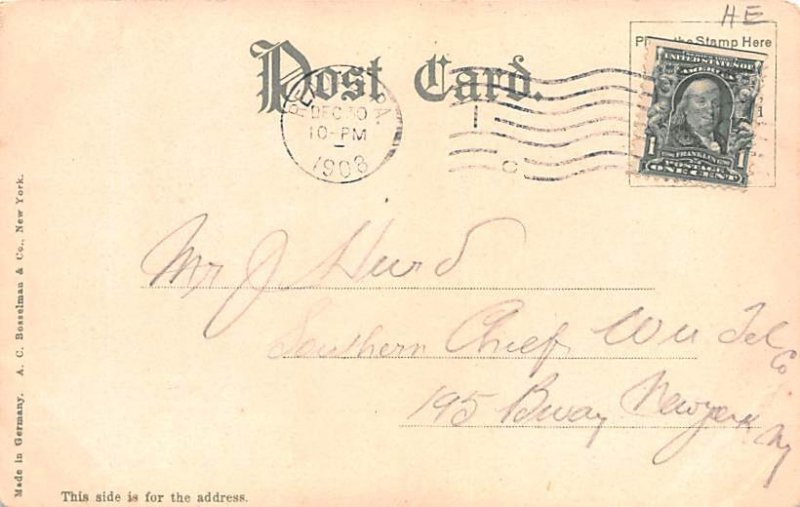 HE
Place the Stamp Here
Post Card.
PA.
DEC 30
10-PM
1903
C
UNITED STATES OF
AMERICA
1 FRANKLIN 1
POSTAGE
ONE CENT
Mr J Hurd
Southern Chief WU Tel
Co
195 Bway Newyork
Ny
Made in Germany. A. C. Bosselman & Co., New York.
This side is for the address.